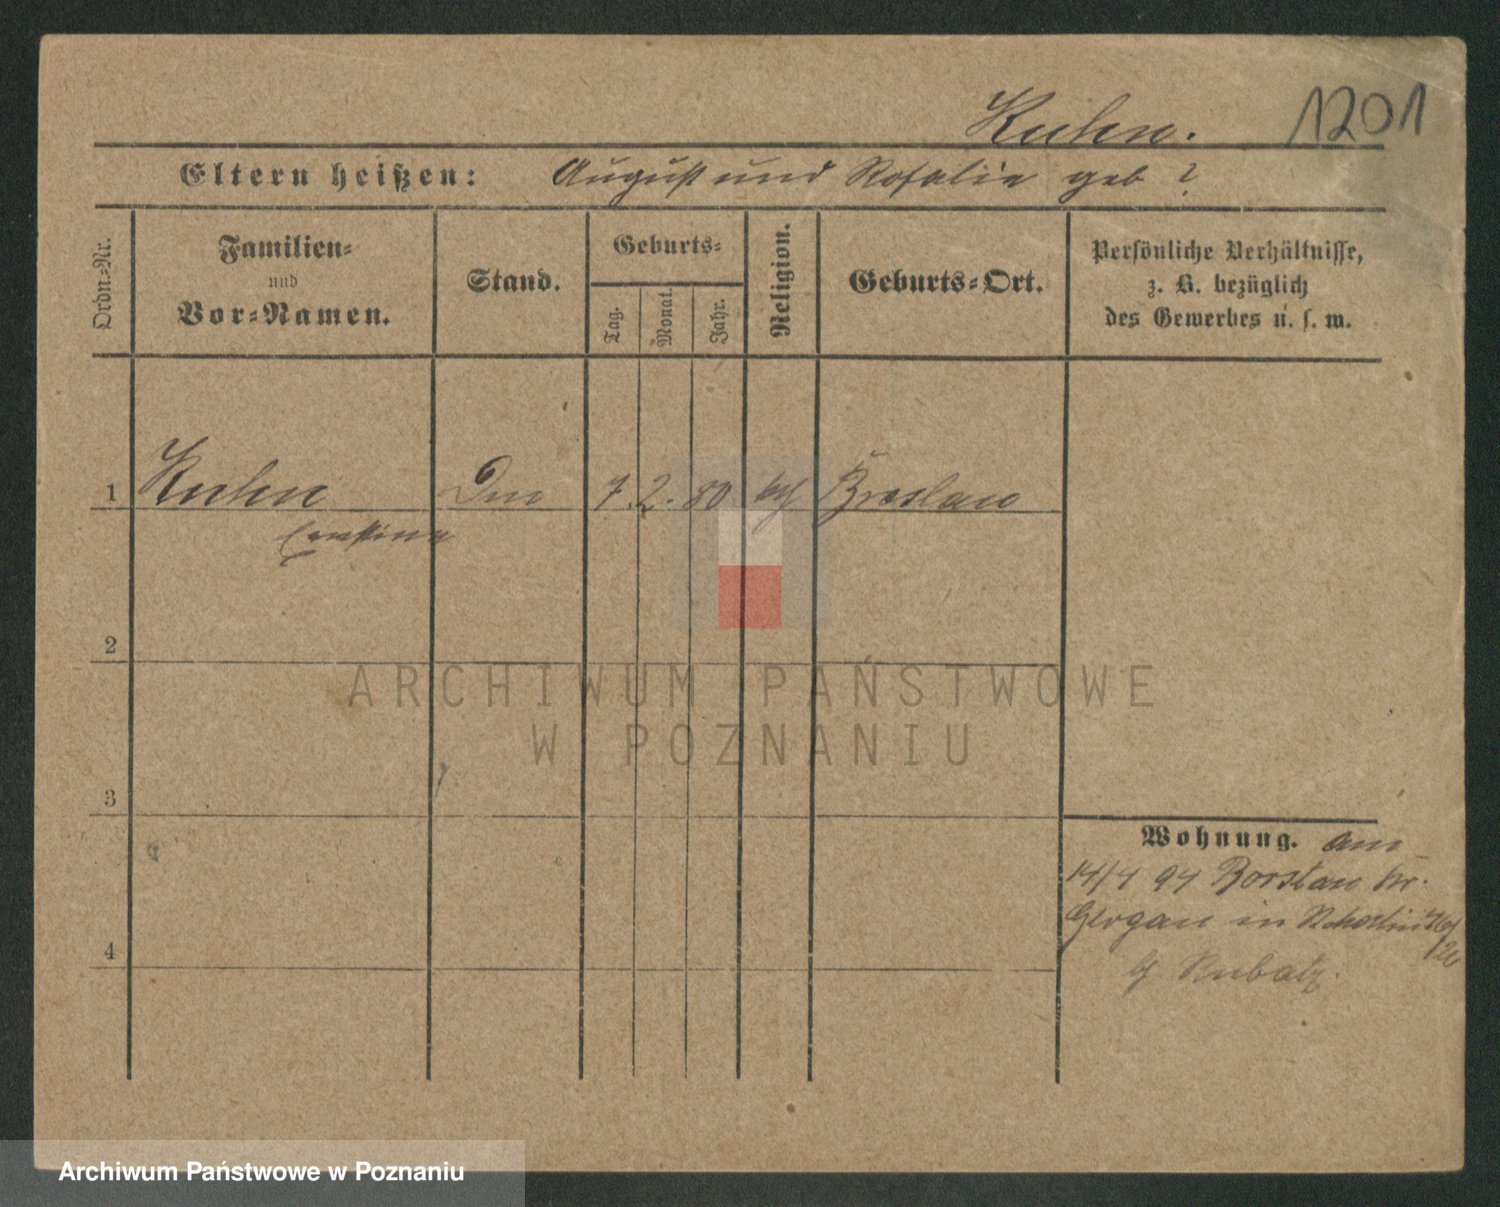 Kuhn. 1201
Eltern heißen: August und Rosalie geb ?
Ordn.-Nr.
Familien-
und
Vor-Namen.
Stand.
Geburts-
Tag.
Monat.
Jahr.
Religion.
Geburts-Ort.
Persönliche Verhältnisse,
z. B. bezüglich
des Gewerbes u. s. w.
1 Kuhn 7. 2. 80 Breslau
Ernstine
2
3
4
Wohnung. am
14/4 94 Borstau Kr.
Glogau in
b/ Kubatz.
ARCHIWUM PAŃSTWOWE
W POZNANIU
Archiwum Państwowe w Poznaniu